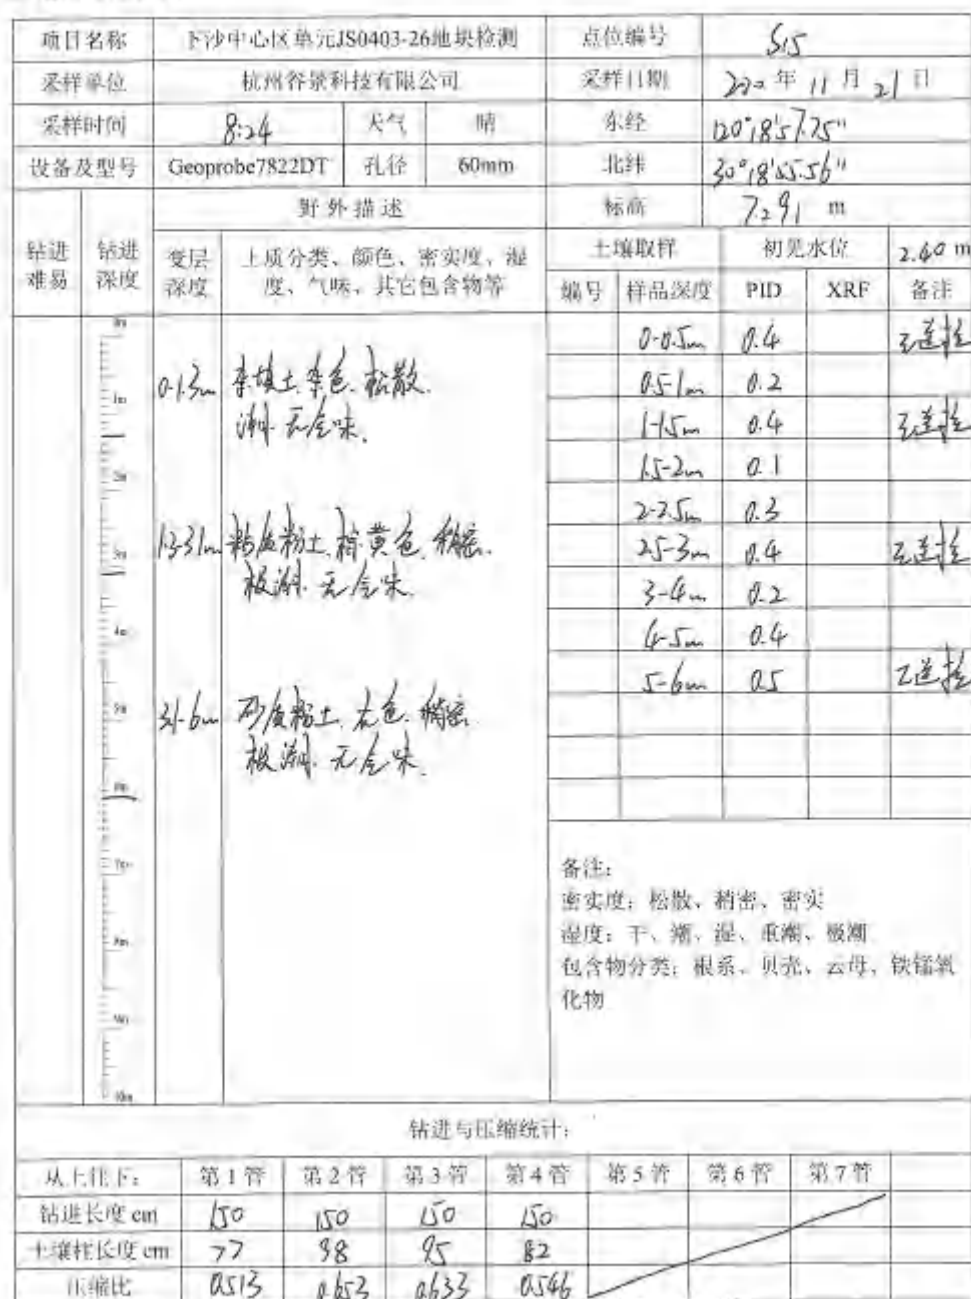 项目名称 下沙中心区单元JS0403-26地块检测 点位编号 S15
采样单位 杭州谷景科技有限公司 采样日期 2020年11月21日
采样时间 8:24 天气 晴 东经 120°18'57.75"
设备及型号 Geoprobe7822DT 孔径 60mm 北纬 30°18'55.56"
钻进难易 钻进深度 野外描述 标高 7.291 m
变层深度 土质分类、颜色、密实度、湿度、气味、其它包含物等 土壤取样 初见水位 2.60 m
编号 样品深度 PID XRF 备注
0m
1m
2m
3m
4m
5m
6m
7m
8m
9m
10m
0-1.3m 杂填土.杂色.松散.
潮.无气味.
1.3-3.1m 粘质粉土.棕黄色.稍密.
极潮.无气味.
3.1-6m 砂质粉土.灰色.稍密.
极潮.无气味.
0-0.5m 0.4 已送检
0.5-1m 0.2
1-1.5m 0.4 已送检
1.5-2m 0.1
2-2.5m 0.3
2.5-3m 0.4 已送检
3-4m 0.2
4-5m 0.4
5-6m 0.5 已送检
备注:
密实度:松散、稍密、密实
湿度:干、潮、湿、重潮、极潮
包含物分类:根系、贝壳、云母、铁锰氧
化物
钻进与压缩统计:
从上往下: 第1管 第2管 第3管 第4管 第5管 第6管 第7管
钻进长度 cm 150 150 150 150
土壤柱长度 cm 77 98 95 82
压缩比 0.513 0.653 0.633 0.546